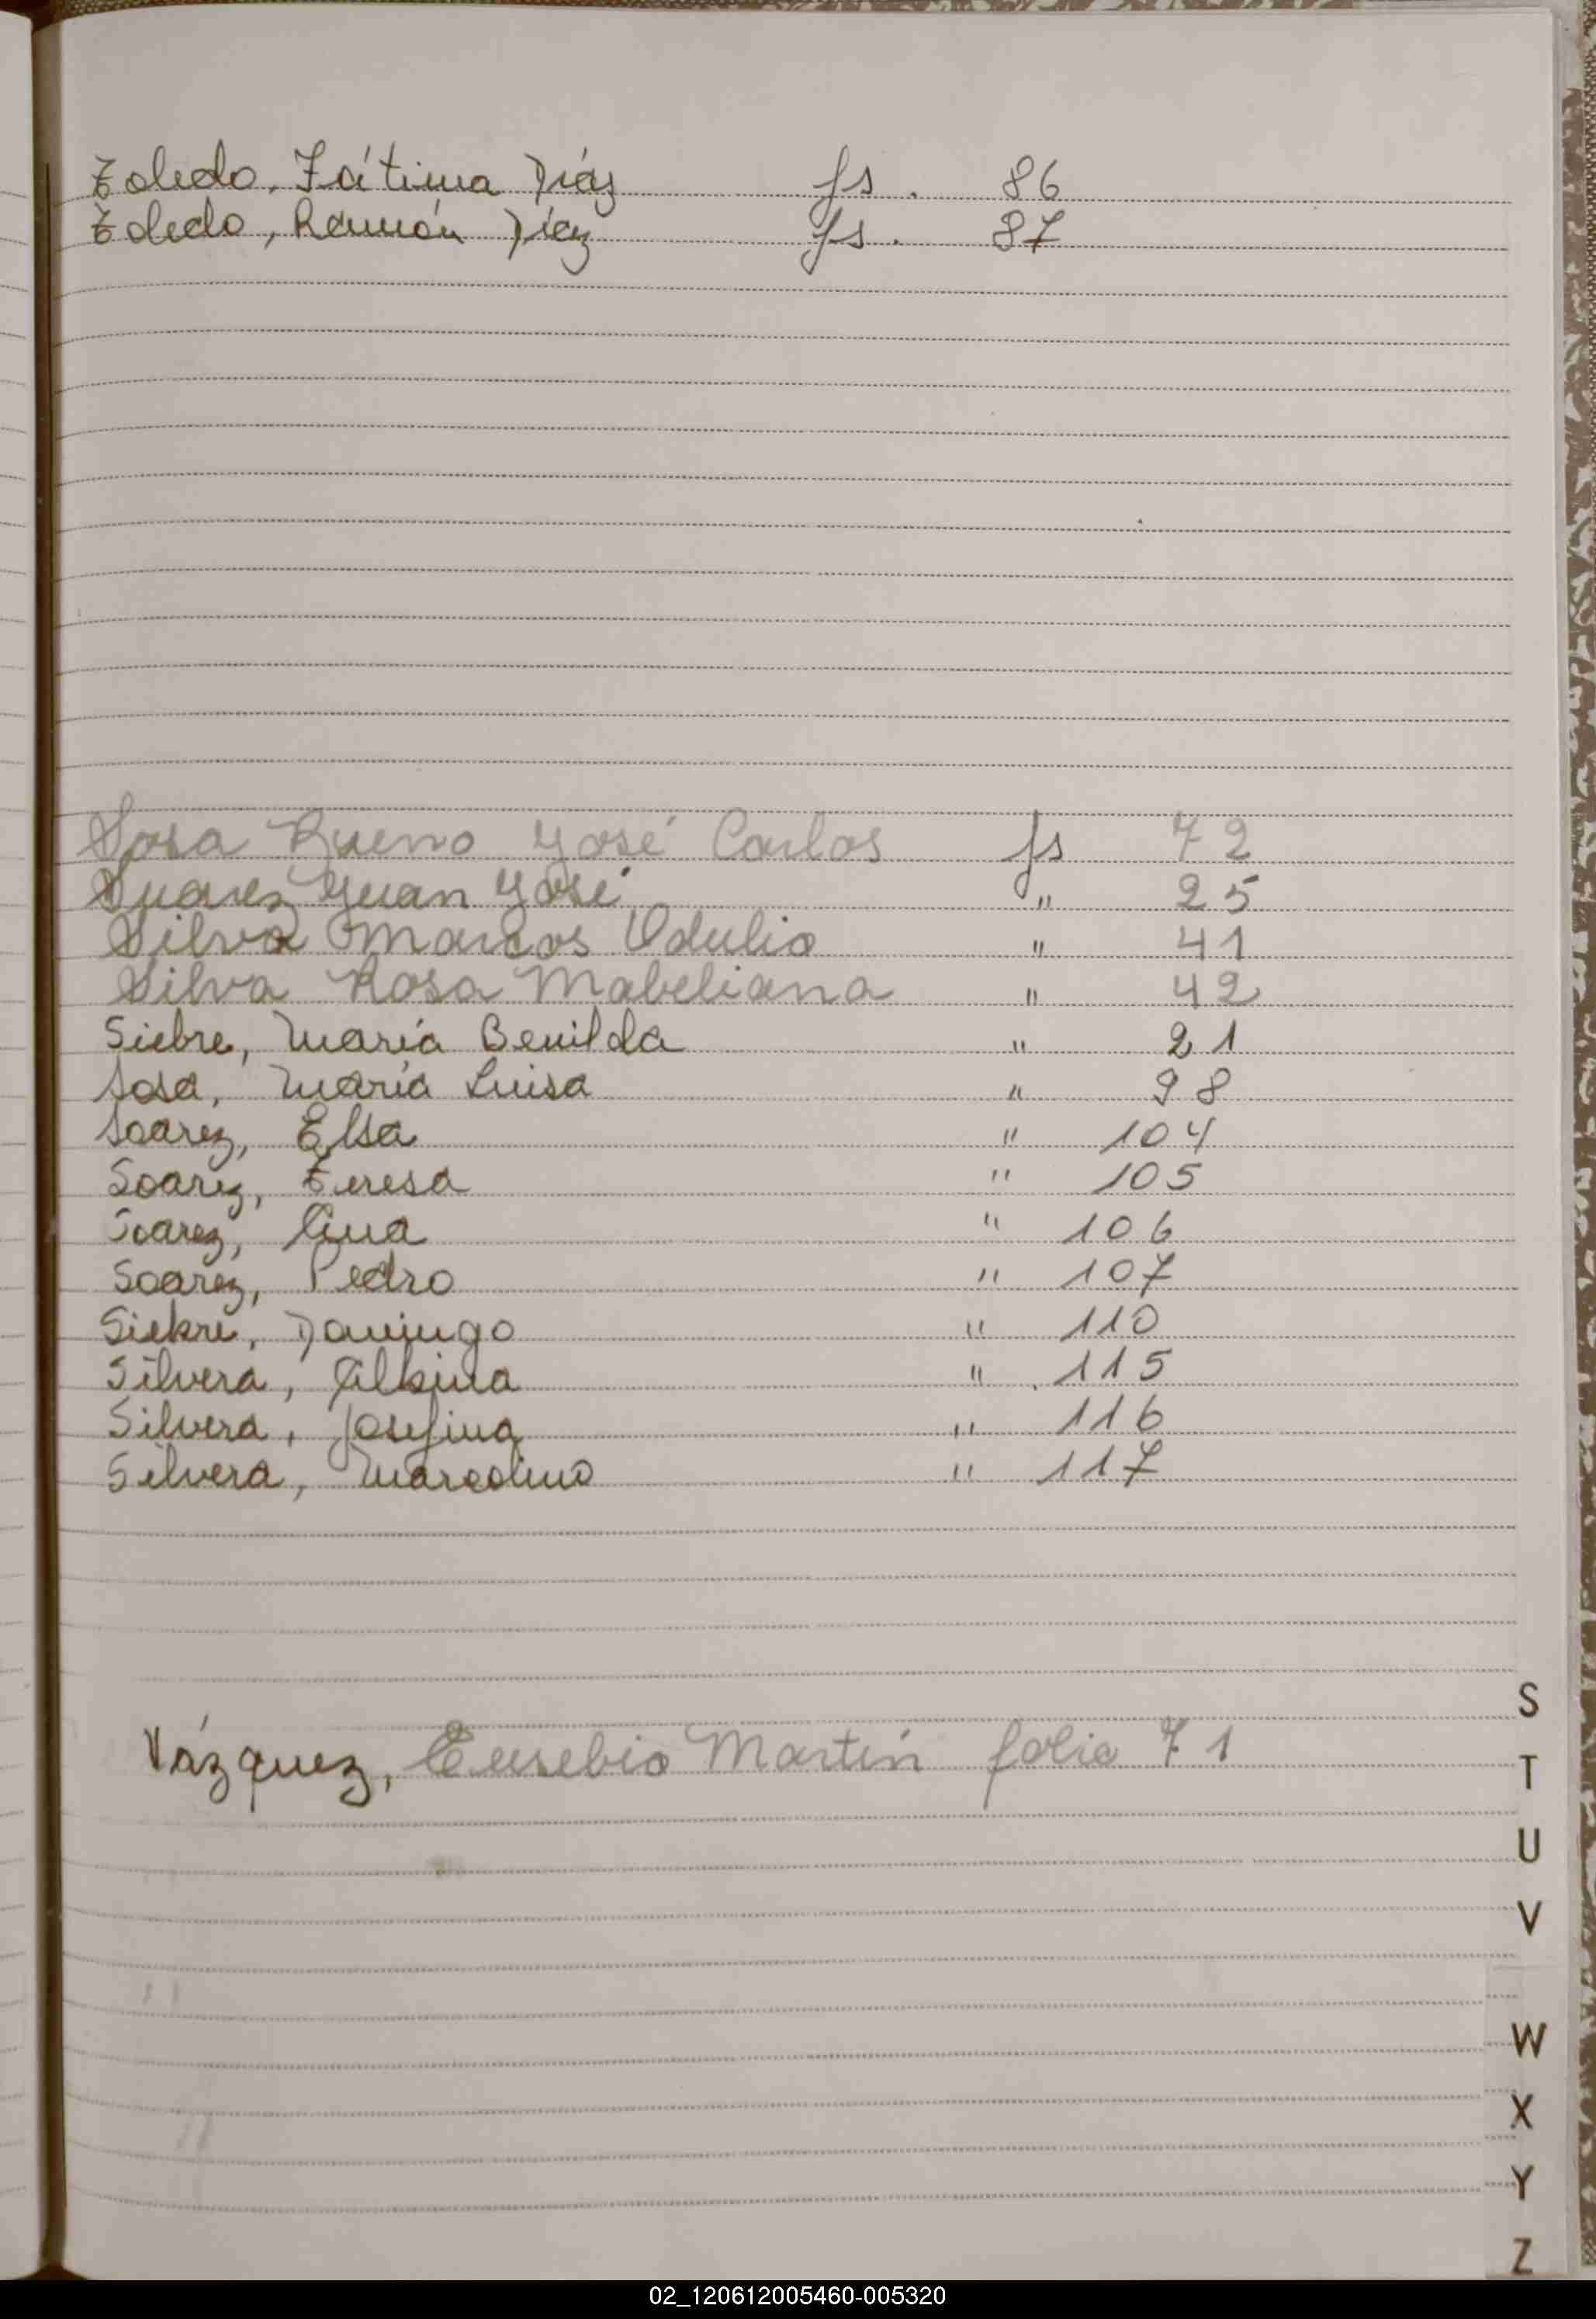 Toledo, Fátima Díaz fs. 86
Toledo, Ramón Díaz fs. 87
Sosa Bueno José Carlos fs 72
Suarez Juan José " 25
Silva Marcos Odulio " 41
Silva Rosa Mabeliana " 42
Siebre, María Benilda " 21
Sosa, María Luisa " 98
Soarez, Elsa " 104
Soarez, Teresa " 105
Soarez, Ana " 106
Soarez, Pedro " 107
Siebre, Domingo " 110
Silvera, Albina " 115
Silvera, Josefina " 116
Silvera, Marcolino " 117
Vázquez, Eusebio Martín folio 71
S
T
U
V
W
X
Y
Z
02_120612005460-005320